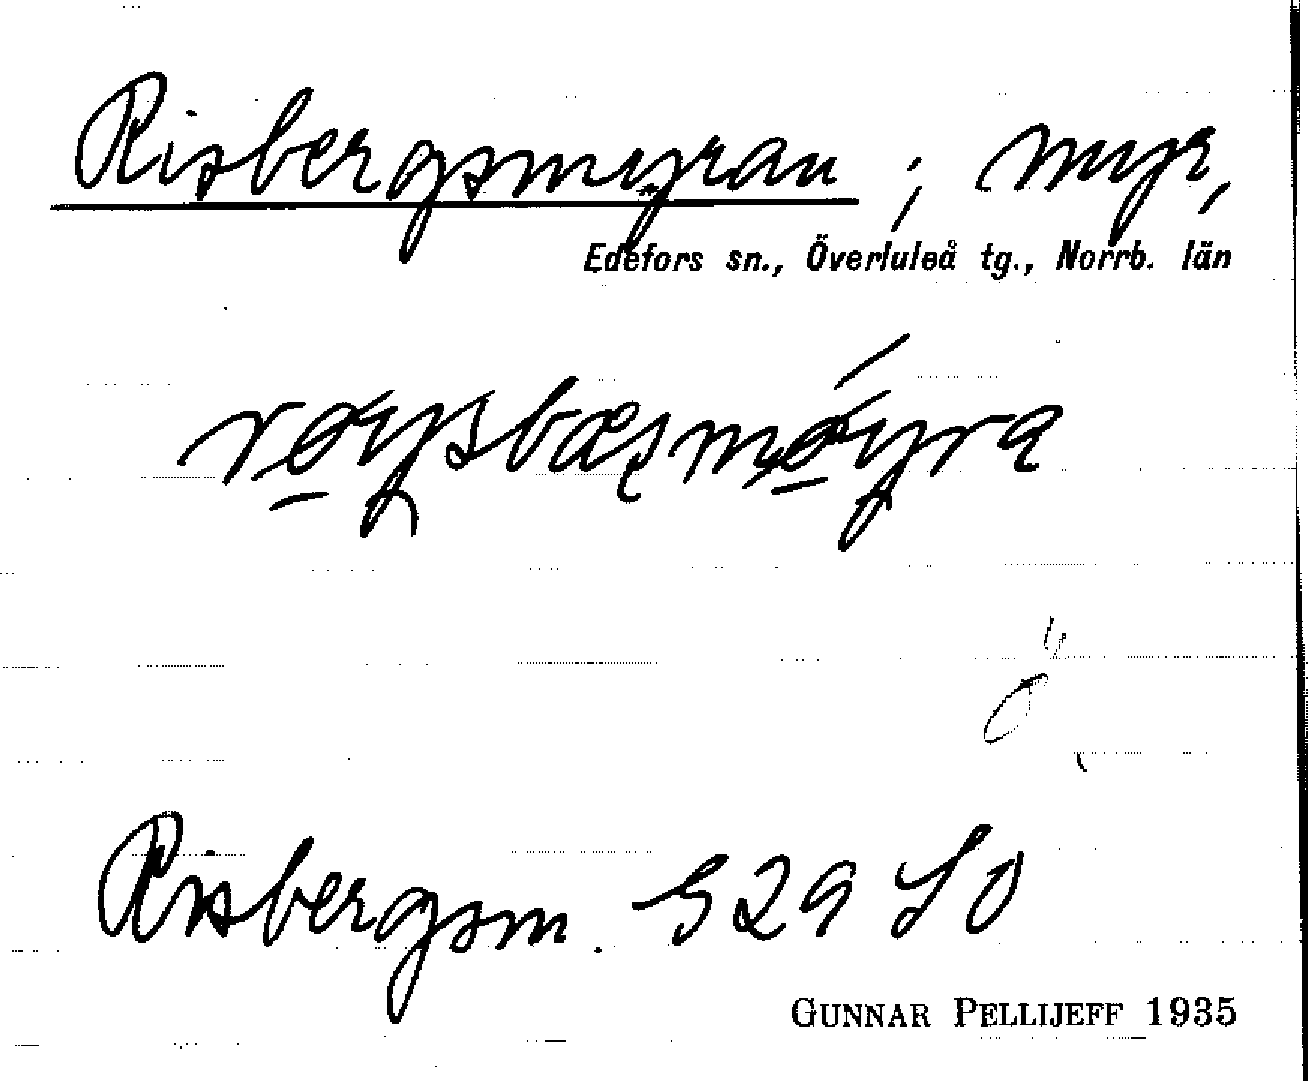 Risbergsmyran ; myr,
Edefors sn., Överluleå tg., Norrb. län
Risbergsm. G29 SO
GUNNAR PELLIJEFF 1935